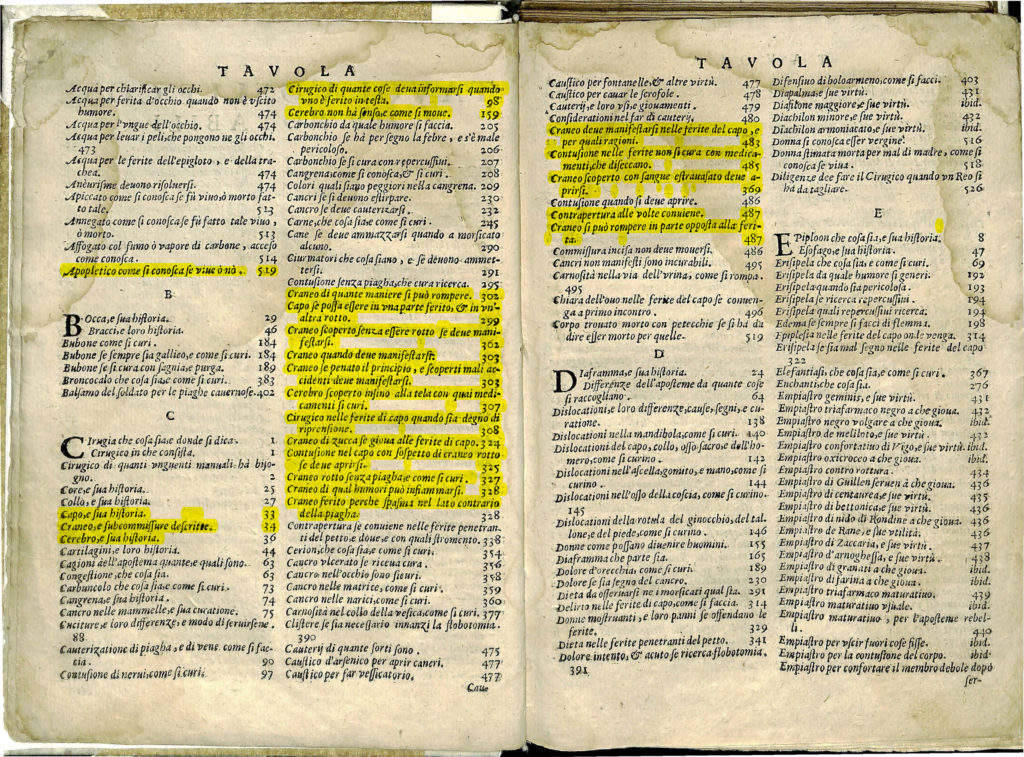 TAVOLA
Acqua per chiarificar gli occhi. 472
Acqua per ferita d'occhio quando non è vscito
humore. 474
Acqua per l'vngue dell'occhio. 474
Acqua per leuar i peli, che pongono ne gli occhi.
473
Acqua per le ferite dell'epigloto, e della tra-
chea. 474
Aneurisme deuono risoluersi. 474
Apiccato come si conosca se fù viuo, ò morto fat
to tale. 513
Annegato come si conosca se fù fatto tale viuo,
ò morto. 513
Affogato col fumo ò vapore di carbone, acceso
come conosca. 514
Apopletico come si conosca se viue ò nò. 519
B
Bocca, e sua historia. 29
Bracci, e loro historia. 46
Bubone come si curi. 184
Bubone se sempre sia gallico, e come si curi. 184
Bubone se si cura con sagnia, e purga. 189
Broncocalo che cosa sia, e come si curi. 383
Balsamo del soldato per le piaghe cauernose. 402
C
Cirugia che cosa sia, e donde si dica. 1
Cirugico in che consista. 1
Cirugico di quanti vnguenti manuali hà biso-
gno. 2
Core, e sua historia. 25
Collo, e sua historia. 27
Capo, e sua historia. 33
Craneo, e subcommissure descritte. 34
Cerebro, e sua historia. 36
Cartilagini, e loro historia. 44
Cagioni dell'apostema quante, e quali sono. 63
Congestione, che cosa sia. 63
Carbuncolo che cosa sia, e come si curi. 73
Cangrena, e sua historia. 74
Cancro nelle mammelle, e sua curatione. 75
Cuciture, e loro differenze, e modo di seruirsene.
88
Cauterizatione di piagha, e di vene. come si fac-
cia. 90
Contusione di nerui, come si curi. 97
Cirugico di quante cose deua informarsi quando
vno è ferito in testa. 98
Cerebro non hà senso, e come si moue. 159
Carbonchio da quale humore si faccia. 205
Carbonchio se hà per segno la febre, e s'è male
pericoloso. 206
Carbonchio se si cura con repercussiui. 207
Cangrena, come si conosca, & si curi. 208
Colori quali siano peggiori nella cangrena. 209
Cancri se si deuono estirpare. 230
Cancro se deue cauterizarsi. 232
Carne, che cosa sia, e come si curi. 245
Cane se deue ammazzarsi quando a morsicato
alcuno. 290
Ciurmatori che cosa siano, e se deuono ammet-
tersi. 291
Contusione senza piagha, che cura ricerca. 295
Craneo di quante maniere si può rompere. 302
Capo se possa essere in vna parte ferito, & in vn'
altra rotto. 299
Craneo scoperto senza essere rotto se deue mani-
festarsi. 362
Craneo quando deue manifestarsi. 303
Craneo se penato il principio, e scoperti mali ac-
cidenti deue manifestarsi. 303
Cerebro scoperto insino alla tela con quai medi-
camenti si curi. 307
Cirugico nelle ferite di capo quando sia degno di
riprensione. 308
Craneo di zucca se gioua alle ferite di capo. 324
Contusione nel capo con sospetto di craneo rotto
se deue aprirsi. 325
Craneo rotto senza piagha, e come si curi. 327
Craneo di qual humori può infiammarsi. 328
Craneo ferito perche spasma nel lato contrario
della piagha. 328
Contrapertura se conuiene nelle ferite penetran
ti del petto, e doue, e con quali stromento. 338
Cerion, che cosa sia, e come si curi. 354
Cancro vlcerato se riceua cura. 356
Cancro nell'occhio sono sicuri. 358
Cancro nelle matrice, come si curi. 359
Cancro nelle narici, come si curi. 360
Carnosità nel collo della vesica, come si curi. 377
Clistere se sia necessario innanzi la flobotomia.
390
Cauterij di quante sorti sono. 475
Caustico d'arsenico per aprir cancri. 477
Caustico per far vessicatorio. 477
Cau-
TAVOLA
Caustico per fontanelle, & altre virtù. 477
Caustico per cauar le scrofole. 478
Cauterij, e loro vsi, e giouamenti. 479
Considerationi nel far di cauterij. 480
Craneo deue manifestarsi nelle ferite del capo, e
per quai ragioni. 483
Contusione nelle ferite non si cura con medica-
menti, che diseccano. 485
Craneo scoperto con sangue estrauasato deue a-
prirsi. 369
Contusione quando si deue aprire. 486
Contrapertura alle volte conuiene. 487
Craneo si può rompere in parte opposta alla feri-
ta. 487
Commissura incisa non deue mouersi. 486
Cancri non manifesti sono incurabili. 495
Carnosità nella via dell'vrina, come si rompa.
495
Chiara dell'ouo nelle ferite del capo se conuen-
ga a primo incontro. 496
Corpo trouato morto con petecchie se si hà da
dire esser morto per quelle. 519
D
Diaframma, e sua historia. 24
Differenze dell'aposteme da quante cose
si raccogliano. 64
Dislocationi, e loro differenze, cause, segni, e cu-
ratione. 138
Dislocationi nella mandibola, come si curi. 440
Dislocationi del capo, collo, osso sacro, e dell'ho-
mero, come si curino. 142
Dislocationi nell'ascella, gomito, e mano, come si
curino. 144
Dislocationi nell'osso della coscia, come si curino.
145
Dislocationi della rotula del ginocchio, del tal-
lone, e del piede, come si curino. 146
Donne come possano diuenire huomini. 155
Diaframma che parte sia. 165
Dolore d'orecchia, come si curi. 189
Dolore se sia segno del cancro. 230
Dieta da osseruarsi ne i morsicati qual sia. 291
Delirio nelle ferite di capo, come si faccia. 314
Donne mostruanti, e loro panni se offendano le
ferite. 329
Dieta nelle ferite penetranti del petto. 341
Dolore intento, & acuto se ricerca flobotomia.
391
Difensiuo di boloarmeno, come si facci. 403
Diapalma, e sue virtù. 431
Diafitone maggiore, e sue virtù. ibid.
Diachilon minore, e sue virtù. 432
Diachilon armoniacato, e sue virtù. ibid.
Donna si conosca esser vergine. 516
Donna stimata morta per mal di madre, come si
conosca se viua. 518
Diligenze dee fare il Cirugico quando vn Reo si
hà da tagliare. 526
E
Epiploon che cosa sia, e sua historia. 8
Esofago, e sua historia. 47
Erisipela che cosa sia, e come si curi. 69
Erisipela da quale humore si generi. 192
Erisipela quando sia pericolosa. 193
Erisipela se ricerca repercussiui. 194
Erisipela quali repercussiui ricerca. 194
Edema se sempre si facci di flemma. 198
Epiplesia nelle ferite del capo onde venga. 314
Erisipela se sia mal segno nelle ferite del capo
322
Elefantiasi, che cosa sia, e come si curi. 367
Enchanti, che cosa sia. 276
Empiastro geminis, e sue virtù. 431
Empiastro triafarmaco negro a che gioua. 432
Empiastro negro volgare a che gioua. ibid.
Empiastro de meliloto, e sue virtù. 432
Empiastro confortatiuo di Vigo, e sue virtù. ibid.
Empiastro oxicroceo a che gioua. ibid.
Empiastro contro rottura. 434
Empiastro di Guillen seruen à che gioua. 436
Empiastro di centaurea, e sue virtù. 435
Empiastro di bettonica, e sue virtù. 436
Empiastro di nido di Rondine a che gioua. 436
Empiastro de Rane, e sue vtilità. 436
Empiastro di Zaccaria, e sue virtù. 437
Empiastro d'arnoghessa, e sue virtù. 438
Empiastro di granati a che gioua. ibid.
Empiastro di farina a che gioua. ibid.
Empiastro triafarmaco maturatiuo. 439
Empiastro maturatiuo vsuale. ibid.
Empiastro maturatiuo, per l'aposteme rebel-
li. 440
Empiastro per vscir fuori cose fisse. ibid.
Empiastro per la contusione del corpo. ibid.
Empiastro per confortare il membro debole dopò
ser-